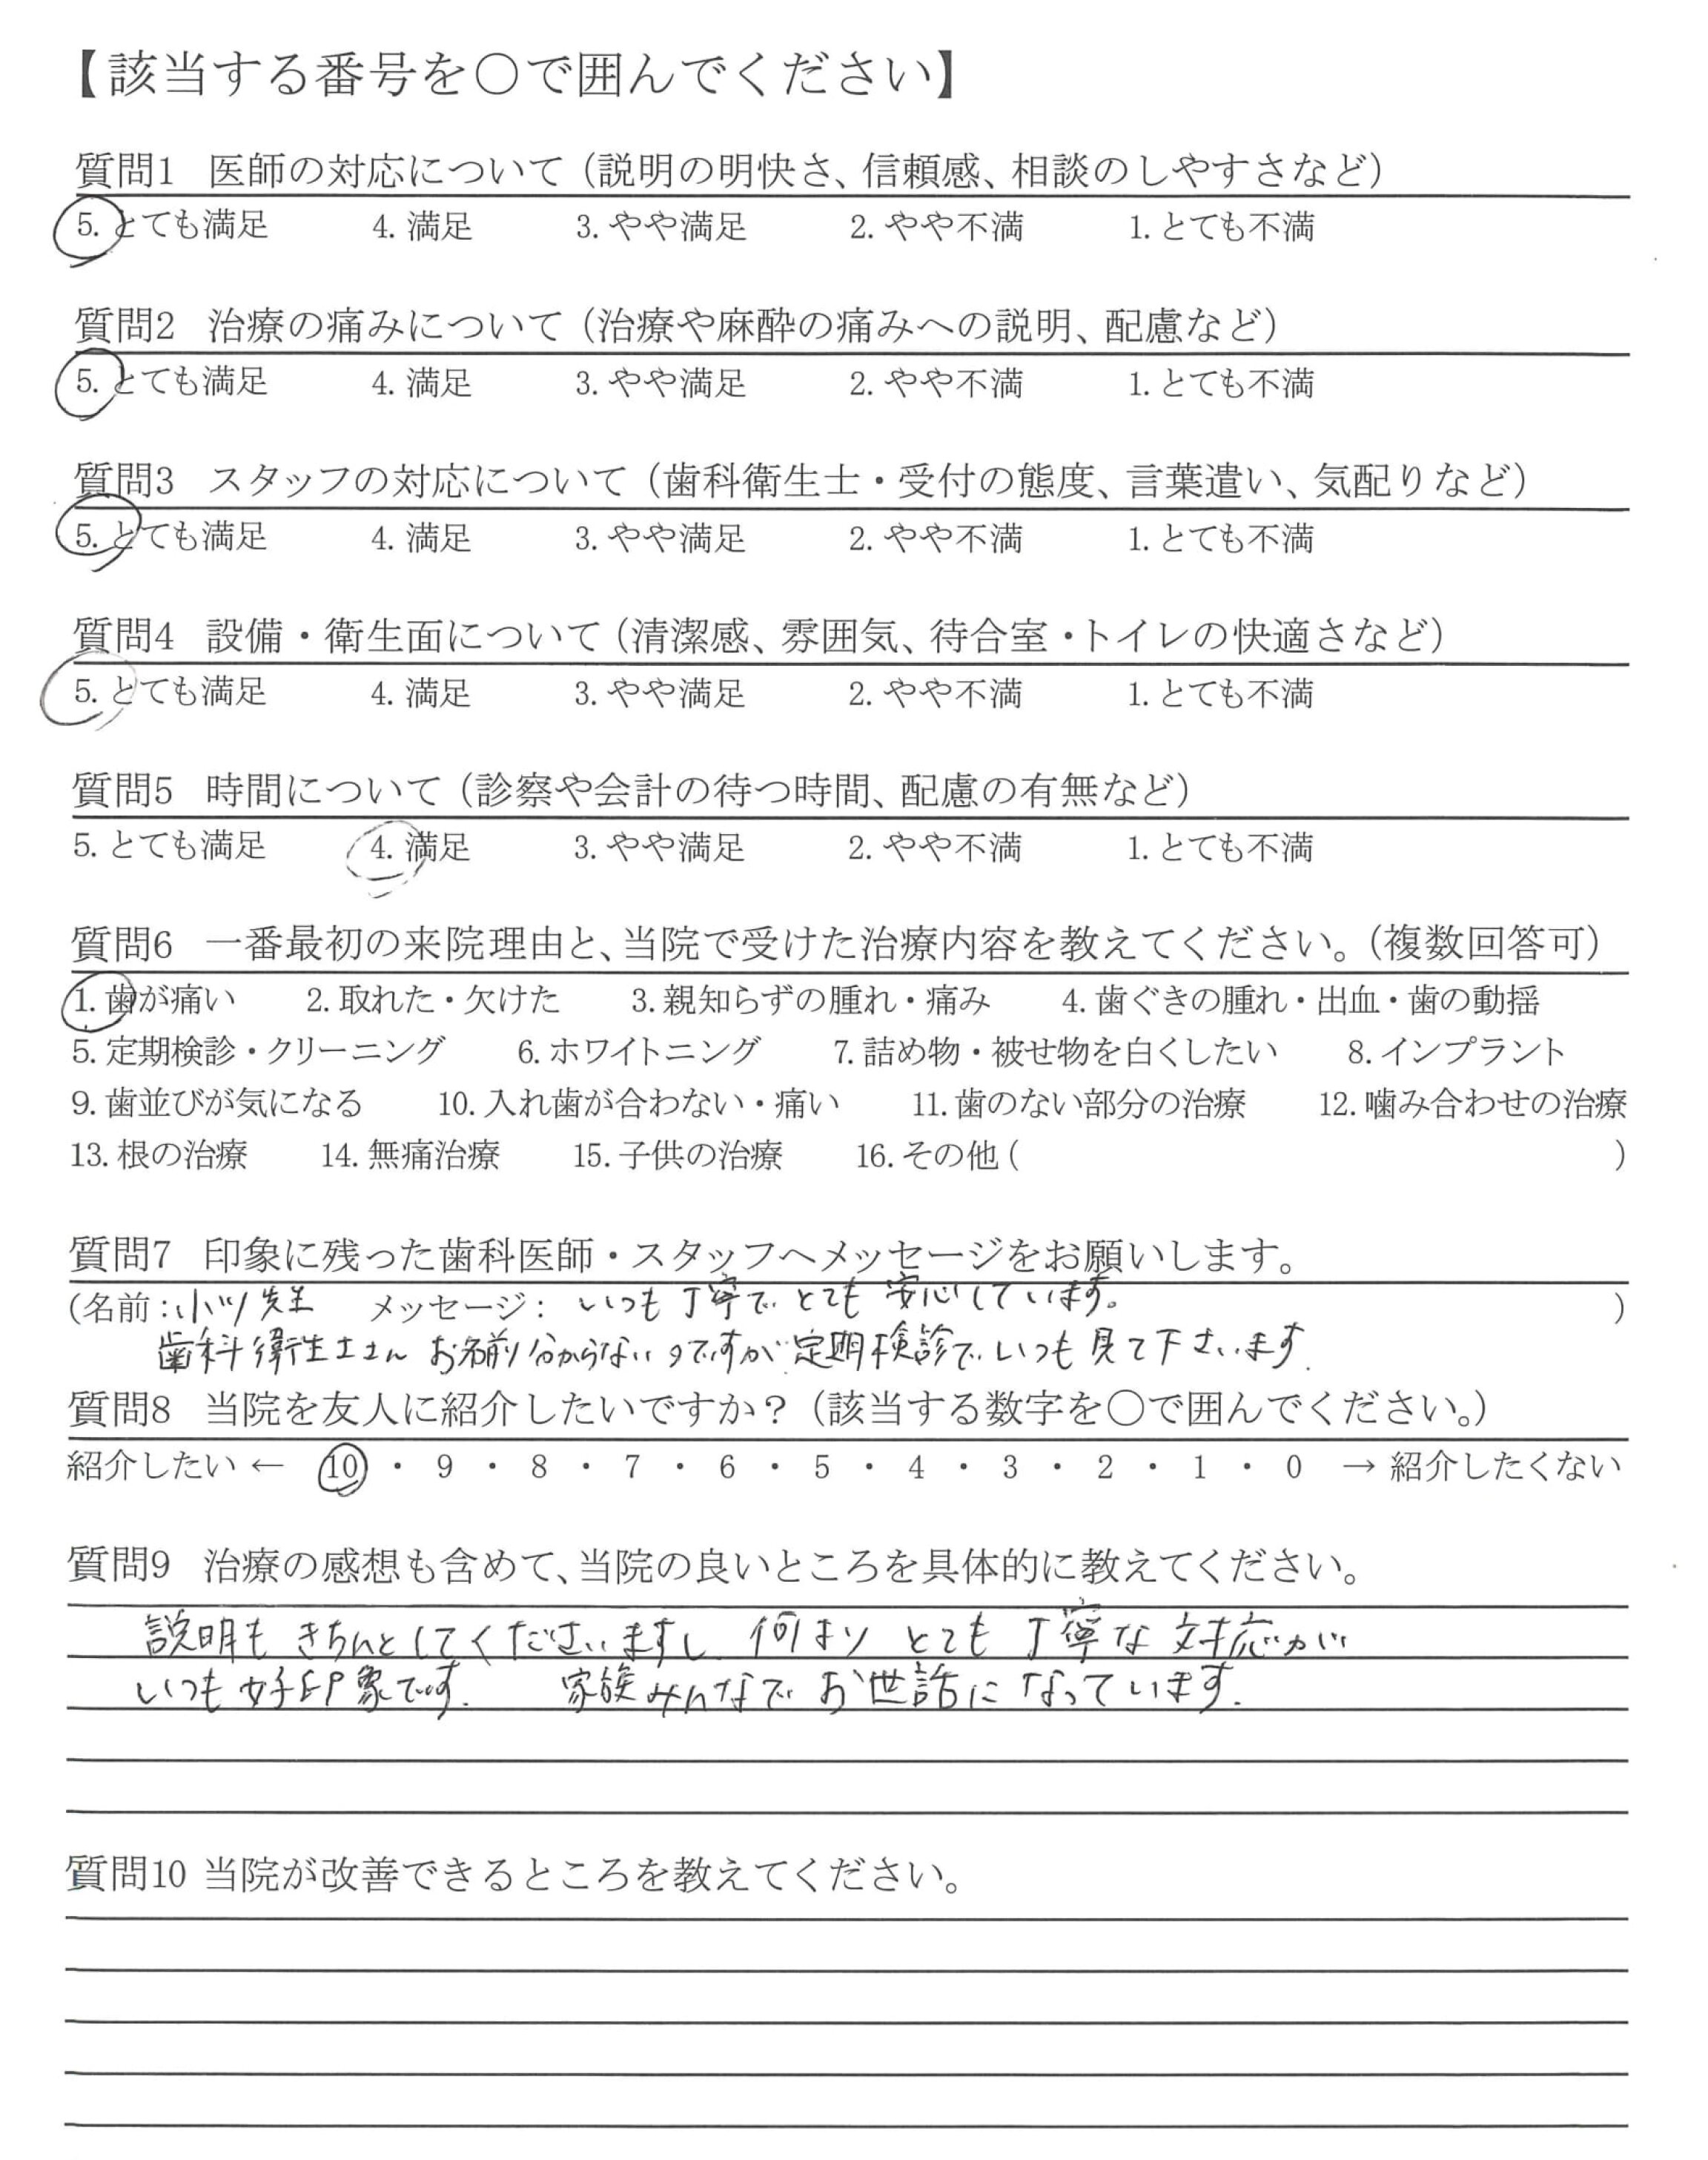 【該当する番号を〇で囲んでください】
質問1 医師の対応について（説明の明快さ、信頼感、相談のしやすさなど）
5. とても満足 4. 満足 3. やや満足 2. やや不満 1. とても不満
質問2 治療の痛みについて（治療や麻酔の痛みへの説明、配慮など）
5. とても満足 4. 満足 3. やや満足 2. やや不満 1. とても不満
質問3 スタッフの対応について（歯科衛生士・受付の態度、言葉遣い、気配りなど）
5. とても満足 4. 満足 3. やや満足 2. やや不満 1. とても不満
質問4 設備・衛生面について（清潔感、雰囲気、待合室・トイレの快適さなど）
5. とても満足 4. 満足 3. やや満足 2. やや不満 1. とても不満
質問5 時間について（診察や会計の待つ時間、配慮の有無など）
5. とても満足 4. 満足 3. やや満足 2. やや不満 1. とても不満
質問6 一番最初の来院理由と、当院で受けた治療内容を教えてください。（複数回答可）
1. 歯が痛い 2. 取れた・欠けた 3. 親知らずの腫れ・痛み 4. 歯ぐきの腫れ・出血・歯の動揺
5. 定期検診・クリーニング 6. ホワイトニング 7. 詰め物・被せ物を白くしたい 8. インプラント
9. 歯並びが気になる 10. 入れ歯が合わない・痛い 11. 歯のない部分の治療 12. 噛み合わせの治療
13. 根の治療 14. 無痛治療 15. 子供の治療 16. その他（ ）
質問7 印象に残った歯科医師・スタッフへメッセージをお願いします。
（名前：先生 メッセージ： いつも丁寧で とても 安心しています。 ）
歯科衛生士さん お名前分からないのですが 定期検診で いつも 見て下さいます.
質問8 当院を友人に紹介したいですか？（該当する数字を〇で囲んでください。）
紹介したい ← 10 ・ 9 ・ 8 ・ 7 ・ 6 ・ 5 ・ 4 ・ 3 ・ 2 ・ 1 ・ 0 → 紹介したくない
質問9 治療の感想も含めて、当院の良いところを具体的に教えてください。
説明も きちんとしてくださいますし 何より とても 丁寧な 対応が
いつも 好印象です. 家族みんなで お世話に なっています.
質問10 当院が改善できるところを教えてください。